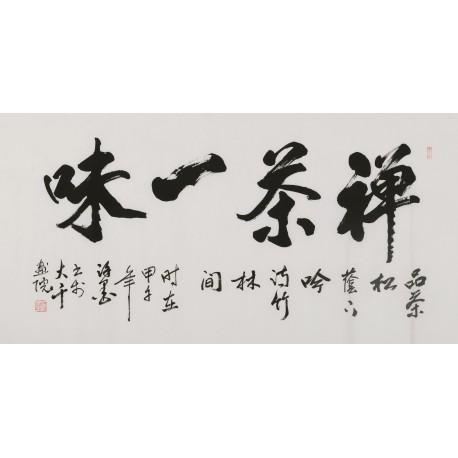 禅茶一味
品茶
松
蔭下
吟
诗竹
林
间
时在
甲午
年
书於
大千
画院